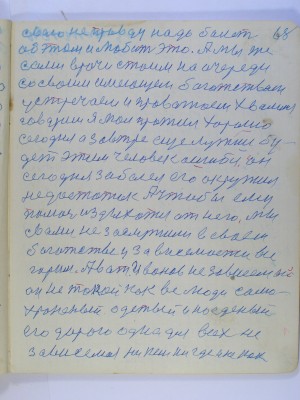 свою неправду надо болит 68
об этом и любит это. А мы же
сами врачи стоим на очереди
со своим имеющем богатством
встречаем и провожаем хвалим
говорим я мол прожил хорошо
сегодня а завтра еще лучше бу-
дет этим человек ошибся он
сегодня заболел его окружил
недостаток А чтобы ему
помог издыхотит от него, мы
с вами не заслужили в своем
богатстве и зависимости не
горим. А вот Иванов не зависимо
он не такой как все люди само-
хранный одетый и поеденый
его дорога одна для всех не
зависимая ни пен ни где не как